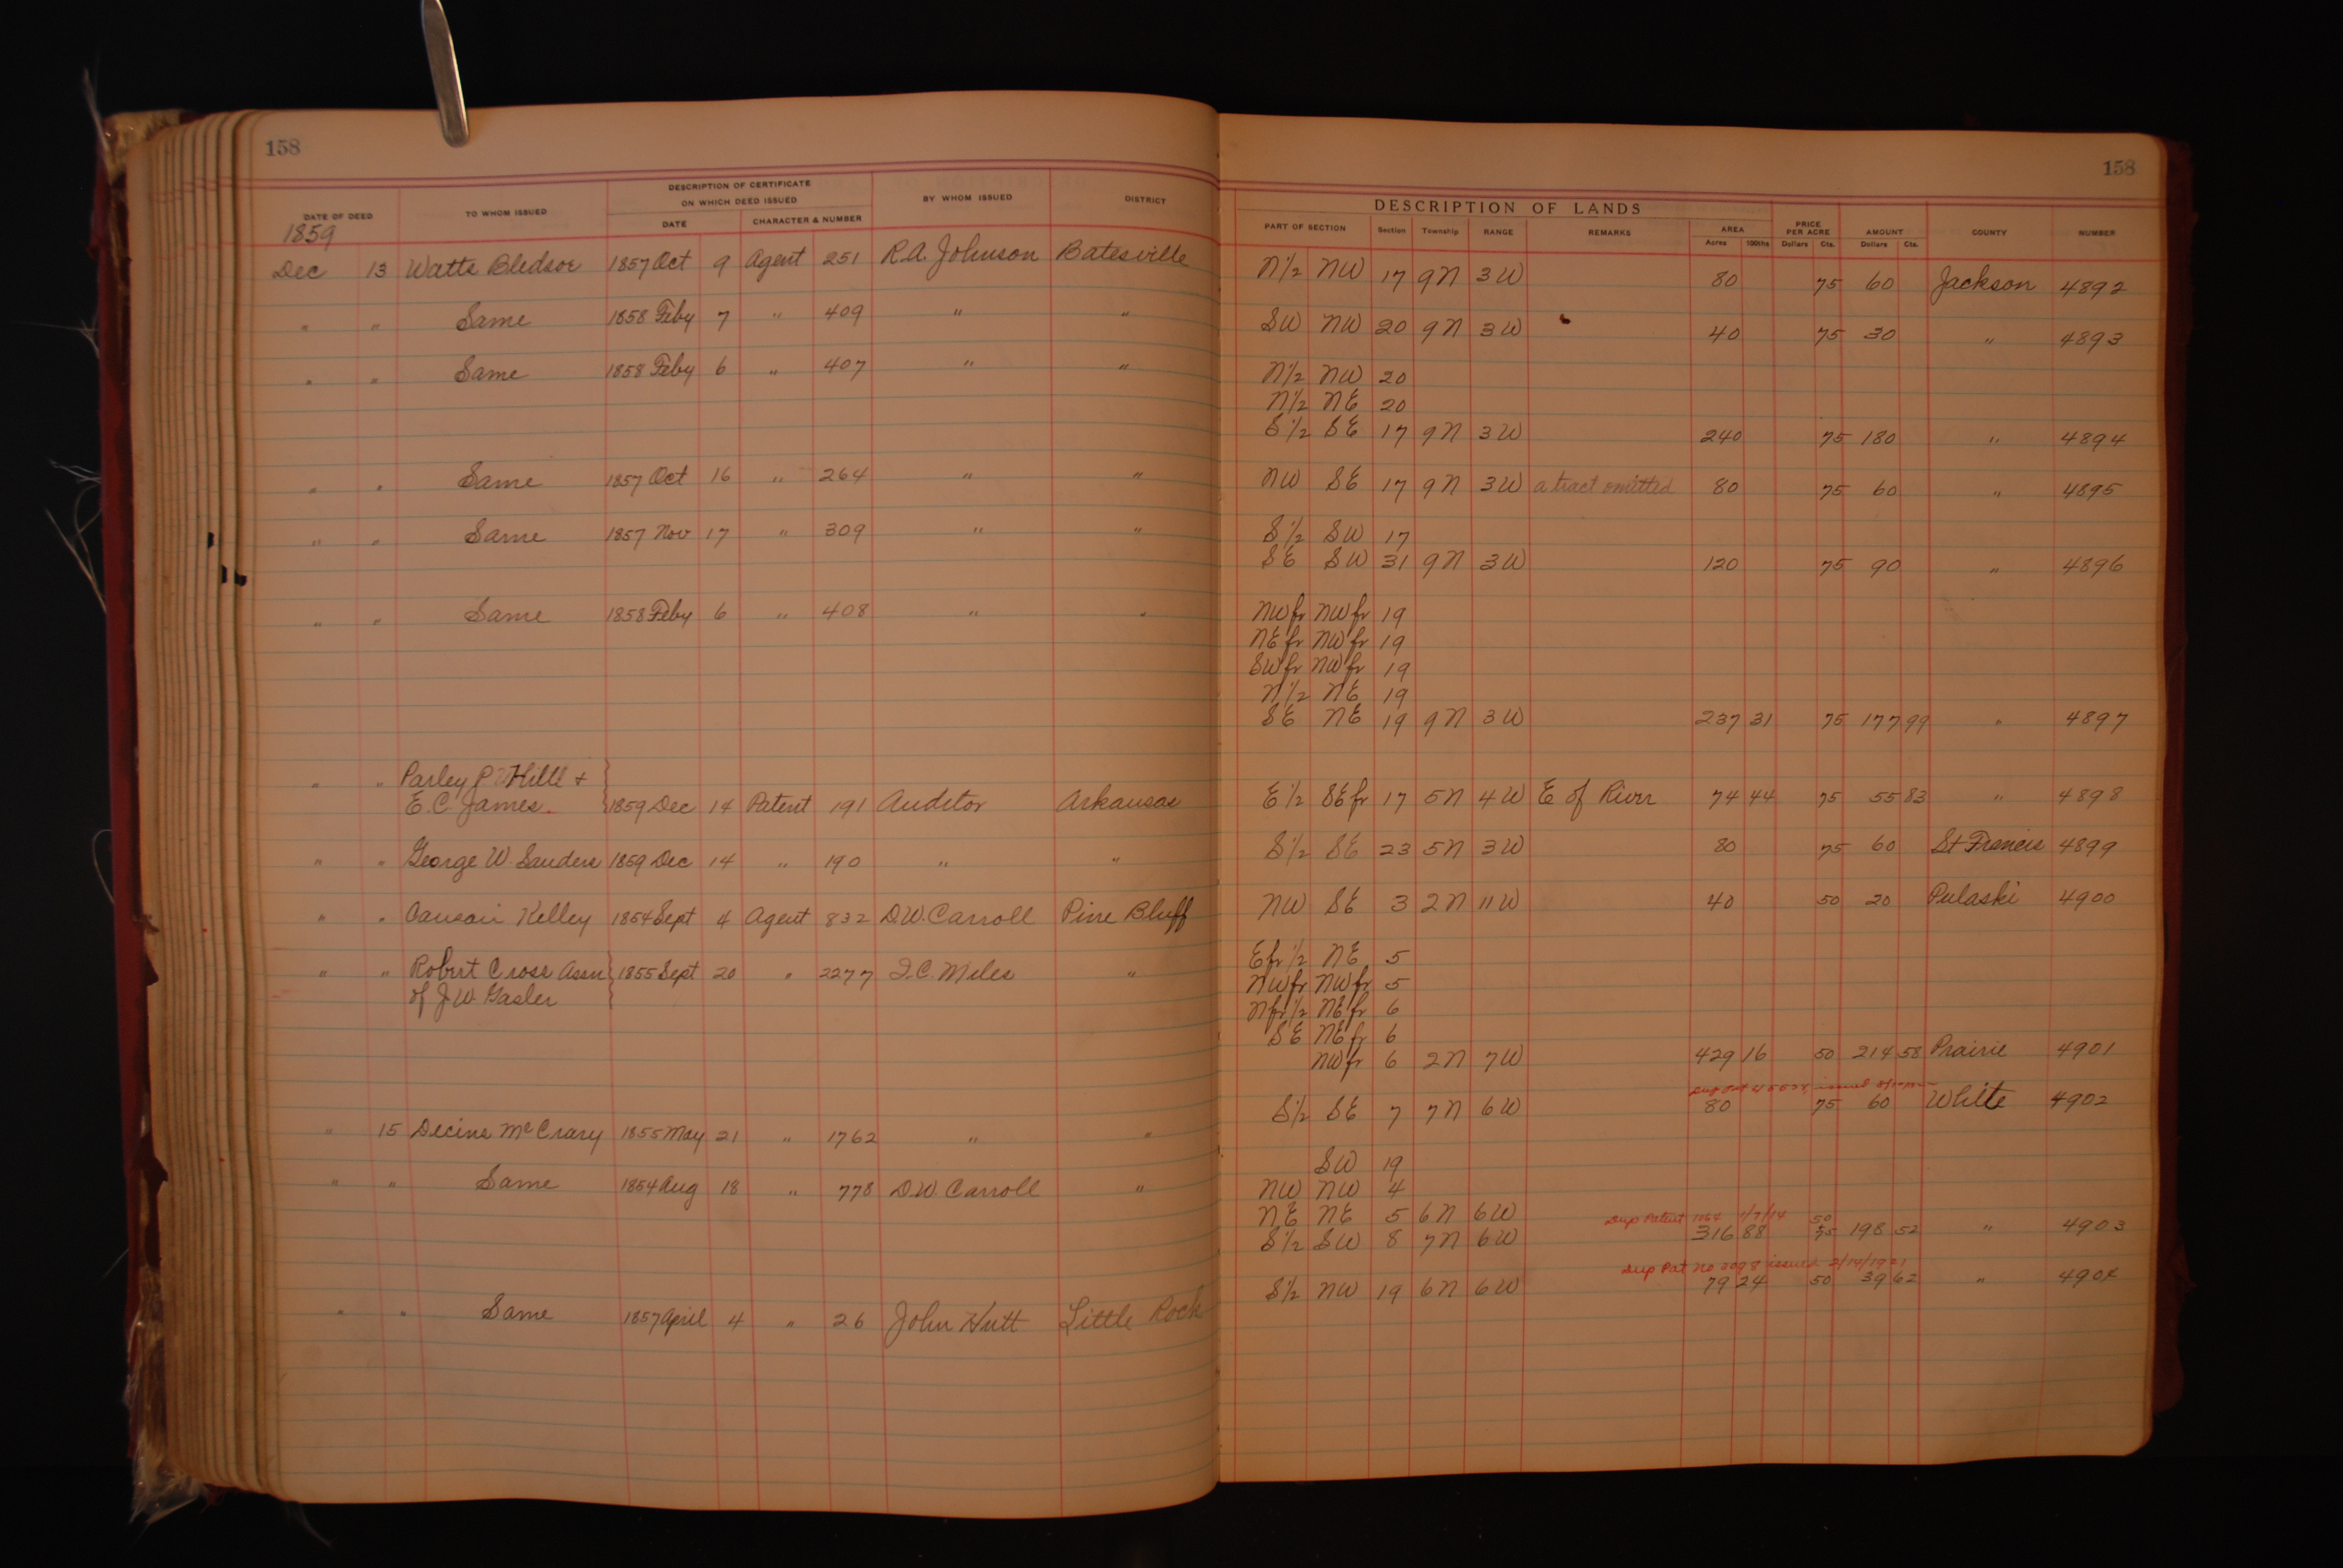 158
158
DATE OF DEED TO WHOM ISSUED DESCRIPTION OF CERTIFICATE ON WHICH DEED ISSUED DATE CHARACTER & NUMBER BY WHOM ISSUED DISTRICT
DESCRIPTION OF LANDS
PART OF SECTION Section Township RANGE REMARKS AREA Acres 100ths PRICE PER ACRE Dollars Cts. AMOUNT Dollars Cts. COUNTY NUMBER
1859
Dec 13 Watts Bledsoe 1857 Oct 9 Agent 251 R.A. Johnson Batesville N½ NW 17 9N 3W 80 75 60 Jackson 4892
" " Same 1858 Feby 7 " 409 " " SW NW 20 9N 3W 40 75 30 " 4893
" " Same 1858 Feby 6 " 407 " " N½ NW 20
N½ NE 20
S½ SE 17 9N 3W 240 75 180 " 4894
" " Same 1857 Oct 16 " 264 " " NW SE 17 9N 3W a tract omitted 80 75 60 " 4895
" " Same 1857 Nov 17 " 309 " " S½ SW 17
SE SW 31 9N 3W 120 75 90 " 4896
" " Same 1858 Feby 6 " 408 " " NWfr NWfr 19
NEfr NWfr 19
SWfr NWfr 19
N½ NE 19
SE NE 19 9N 3W 237 31 75 177 99 " 4897
" " Parley P. Hills +
E.C. James. 1859 Dec 14 Patent 191 Auditor Arkansas E½ SEfr 17 5N 4W E of River 74 44 75 55 83 " 4898
" " George W. Sanders 1859 Dec 14 " 190 " " S½ SE 23 5N 3W 80 75 60 St Francis 4899
" " Kelley 1854 Sept 4 Agent 832 D.W. Carroll Pine Bluff NW SE 3 2N 11W 40 50 20 Pulaski 4900
" " Robert Cross Assn 1855 Sept 20 " 2277 Miles " Efr½ NE 5
of J.W. NWfr NWfr 5
Nfr½ NEfr 6
SE NEfr 6
NWfr 6 2N 7W 429 16 50 214 58 Prairie 4901
issued
" 15 McCrary 1855 May 21 " 1762 " " S½ SE 7 7N 6W 80 75 60 White 4902
SW 19
" " Same 1854 Aug 18 " 778 D.W. Carroll " NW NW 4
NE NE 5 6N 6W Dup Patent 1064 1/7/14 50
S½ SW 8 7N 6W 316 88 75 198 52 " 4903
Dup Pat No 3098 issued 2/14/1921
" " Same 1857 April 4 " 26 John Hutt Little Rock S½ NW 19 6N 6W 79 24 50 39 62 " 4904